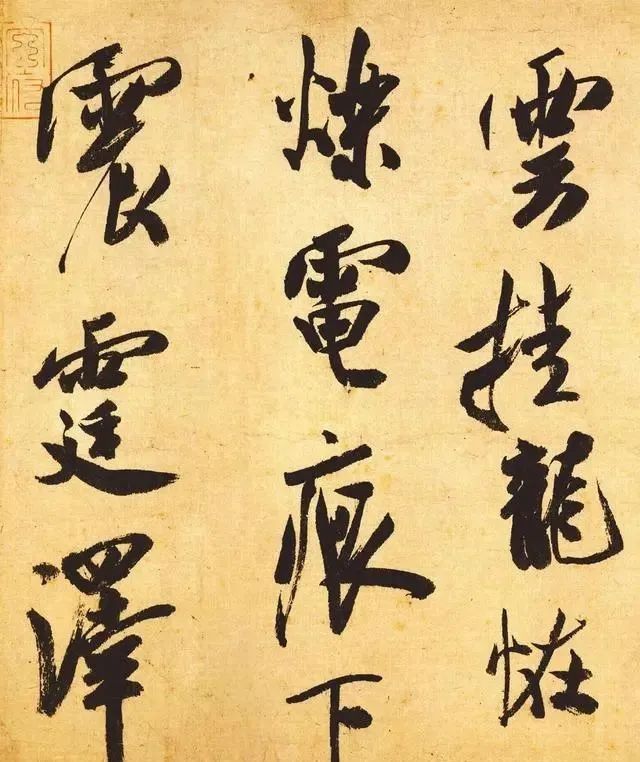 雲挂龍怪
爍電痕下
震霆澤